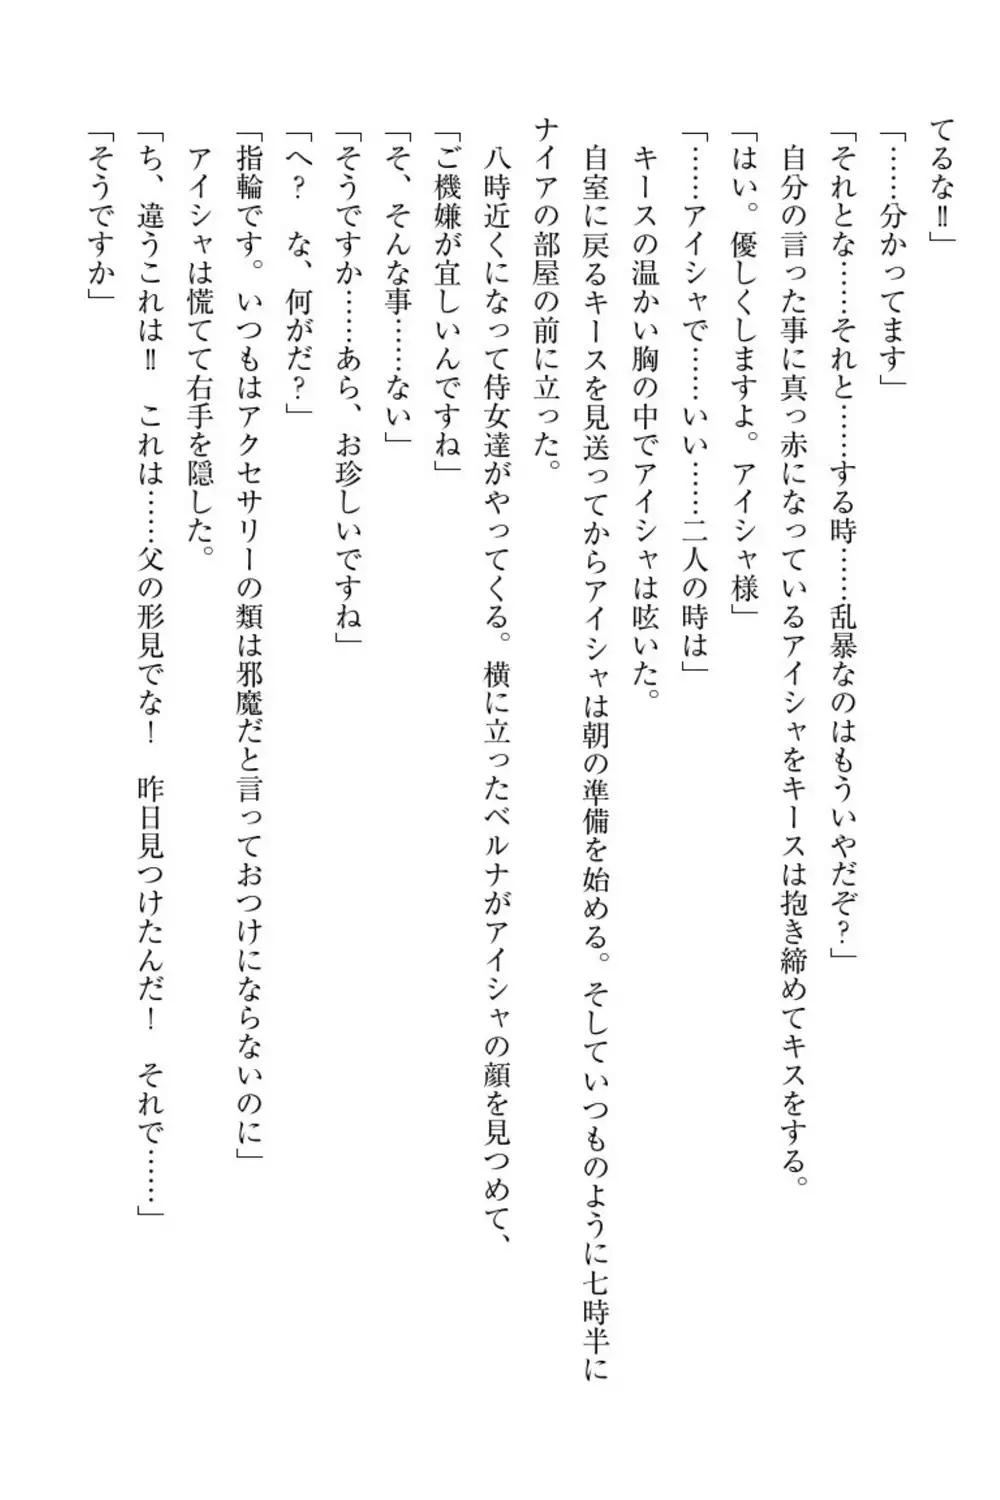 てるな‼」
「……分かってます」
「それとな……それと……する時……乱暴なのはもういやだぞ?」
自分の言った事に真っ赤になっているアイシャをキースは抱き締めてキスをする。
「はい。優しくしますよ。アイシャ様」
「……アイシャで……いい……二人の時は」
キースの温かい胸の中でアイシャは呟いた。
自室に戻るキースを見送ってからアイシャは朝の準備を始める。そしていつものように七時半に
ナイアの部屋の前に立った。
八時近くになって侍女達がやってくる。横に立ったベルナがアイシャの顔を見つめて、
「ご機嫌が宜しいんですね」
「そ、そんな事……ない」
「そうですか……あら、お珍しいですね」
「へ? な、何がだ?」
「指輪です。いつもはアクセサリーの類は邪魔だと言っておつけにならないのに」
アイシャは慌てて右手を隠した。
「ち、違うこれは‼ これは……父の形見でな! 昨日見つけたんだ! それで……」
「そうですか」